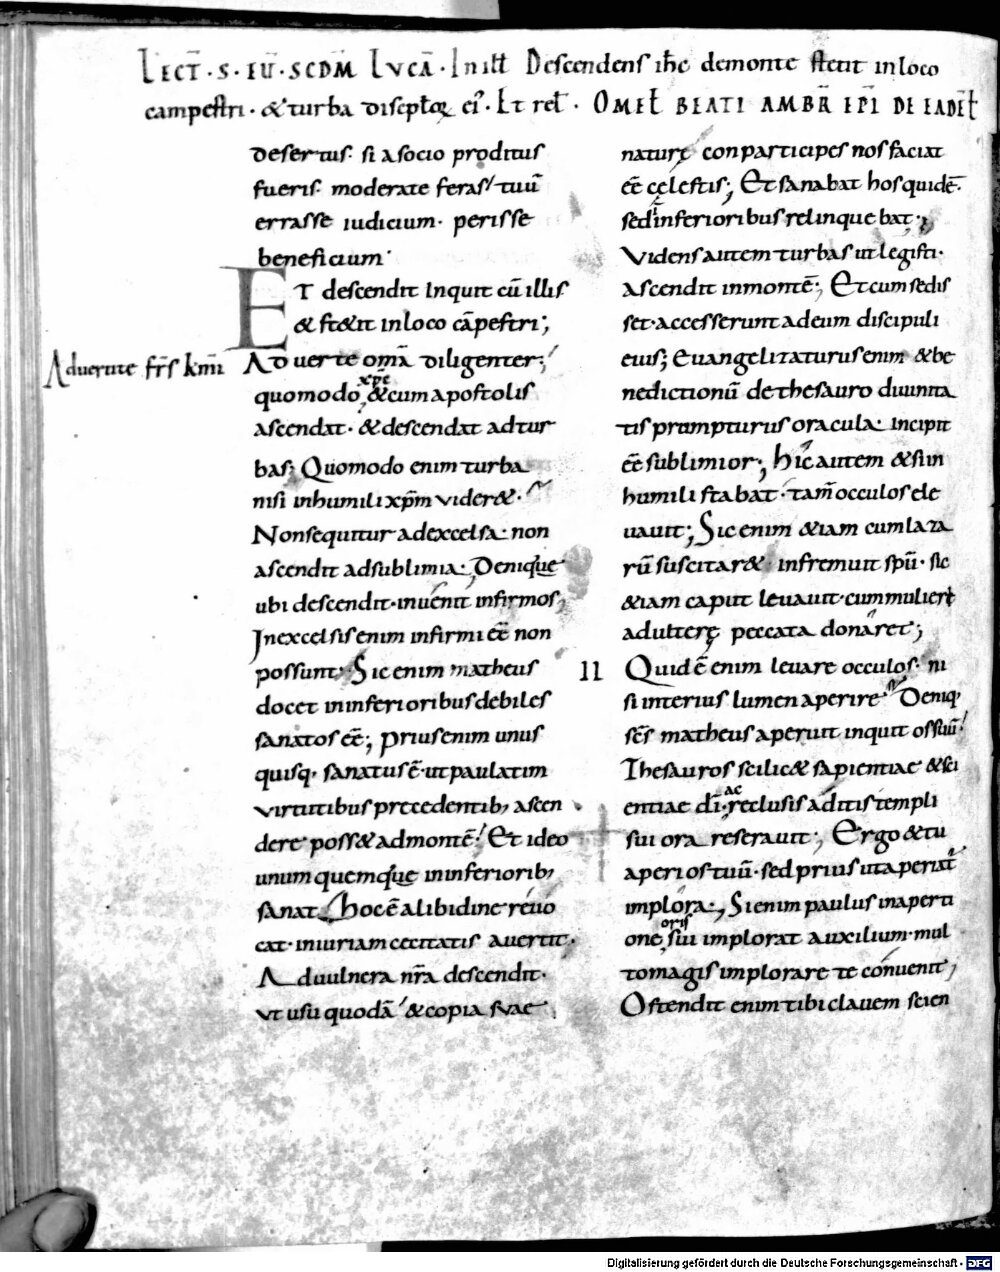 LECT̄ · S · EŪ · SCDM̄ LVCĀ · In illt Descendens ih̄c demonte stetit inloco
campestri · & turba discipl̄oꝝ ei᾽ · Et rel̄ · OMEL̄ BEATI AMBR̄ EP̄I DE EADĒ L̄
desertus · si a socio proditus
fueris · moderate feras tuū
errasse iudicium · perisse
beneficium ·
ET descendit inquit cū illis
& st&it inloco cāpestri ;
Aduertite fr̄s km̄i
Aduerte om̄a diligenter ;
quomodo xp̄c &cum apostolis
ascendat · & descendat adtur
bas ; Quomodo enim turba
nisi inhumili xp̄m vider& ·
Nonsequitur adexcelsa · non
ascendit adsublimia ; Denique
ubi descendit · inuenit infirmos ;
Inexcelsis enim infirmi eē non
possunt ; Sic enim matheus
docet ininferioribus debiles
sanatos eē ; prius enim unus
quisq; sanatus ē · ut paulatim
virtutibus precedentib; ascen
dere poss& admontē ; Et ideo
unumquemque ininferiorib;
sanat Hoc ē alibidine reuo
cat · iniuriam cecitatis avertit ·
Aduulnera nr̄a descendit ·
vt usu quodā & copia suae
naturę conparticipes nos faciat
eē cęlestis ; Et sanabat hos quidē ·
sed inferioribus relinquebat ;
Videns autem turbas ut legisti ·
ascendit inmontē ; Et cum sedis
set · accesserunt adeum discipuli
eius ; Euangelizaturus enim & be
nedictionū de thesauro diuinita
tis prompturus oracula · incipit
eē sublimior ; Hic autem &si in
humili stabat · tam̄ occulos ele
uauit ; Sic enim &iam cum laza
rū suscitar& infremuit spū · sic
&iam caput leuauit · cum mulieri
adulterę peccata donaret ;
II Quid ē enim leuare occulos · ni
si interius lumen aperire Deniq;
scs̄ matheus aperuit inquit os suū
Thesauros scilic& sapientiae & sci
entiae dī · ac reclusis aditis templi
sui ora reserauit ; Ergo & tu
aperi os tuū · sed prius ut aperiat̄
implora ; Si enim paulus inaperti
one oris sui implorat auxilium · mul
tomagis implorare te conuenit ;
Ostendit enim tibi clauem scien
Digitalisierung gefördert durch die Deutsche Forschungsgemeinschaft - DFG